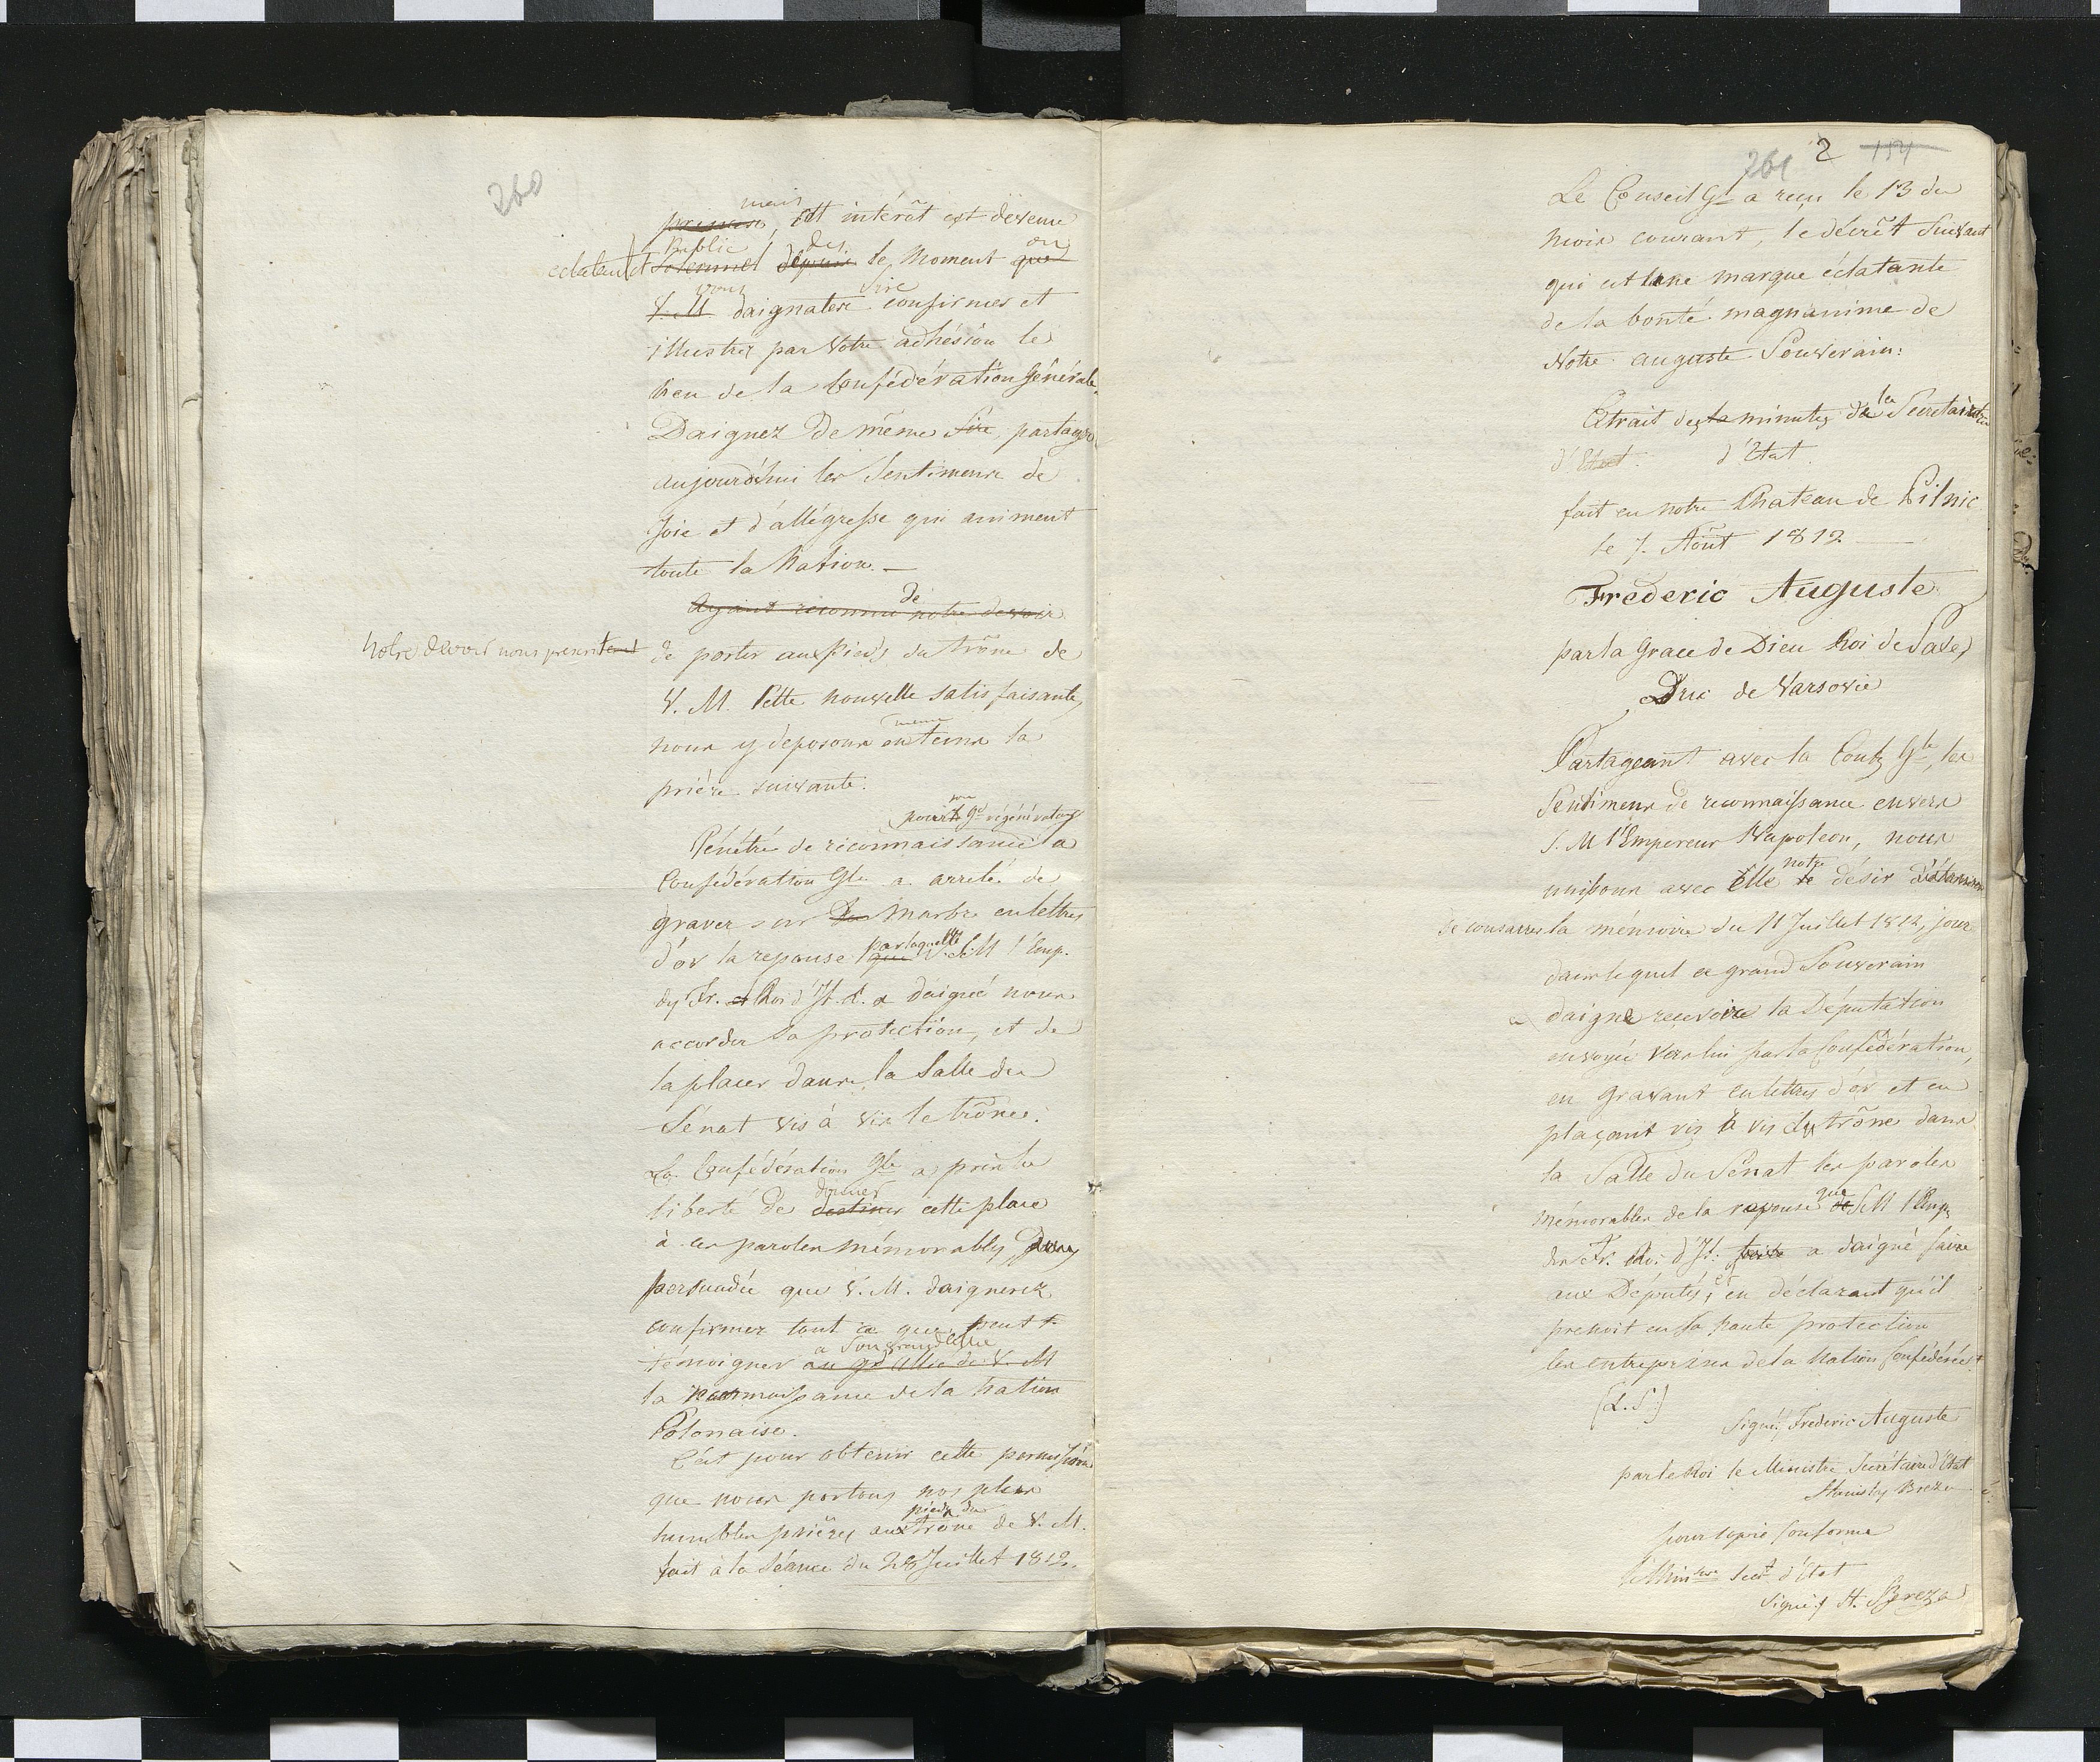 260
mais
presume, cet intérêt est devenu
Public des où
eclatant et solemnel depuis le, Moment que
vous Sire
V. M. daignates confirmer et
illustrer par Votre adhésion le
lien de la Confédération Générale.
Daignez de même Sire, partager
aujourd'hui les Sentimens de
Joie et d'allégresse qui animent
toute la Nation. —
de
Ayant reconnu notre devoir
Notre devoir nous prescritant de porter aux Pieds du trône de
V. M. Cette nouvelle satisfaisante,
même
nous y deposons en tems la
prière suivante:
pour son gd régénérateur
Pénétré de reconnaissance la
Confédération Gle a arreté de
graver sur du Marbre en lettres
par laquelle
d'or la reponse que V. S. M l'Emp.
des Fr. et Roi d'It. d. a daigné nous
accorder sa protection, et de
la placer dans la Salle du
Sénat vis à vis le trône.
La Confédération Gle a pris la
donner
liberté de destiner cette place
à ces paroles mémorables,
persuadée que V. M. daignerez
confirmer tout ce que peut
a Son grand allié
témoigner au gd Allié de V. M
la reconnaissance de la Nation
Polonaise.
C'est pour obtenir cette permission
que nous portons nos plus
pieds du
humbles prières aux trône de V. M.
fait à la Séance du 28 Juillet 1812.
261 2 154
Le Conseil Gl a reçu le 13 du
mois courant, le décrèt Suivant
qui est une marque éclatante
de la bonté magnanime de
Notre auguste Souverain:
la
Extrait des la minutes de Secretairerie
d'Etat. d'Etat.
fait en notre Chateau de Pilnic
le 7. Août 1812 —
Frederic Auguste
par la Grace de Dieu Roi de Saxe,
Duc de Varsovie
Partageant avec la Conf. Gle, les
Sentimens de reconnaissance envers
S. M l'Empereur Napoleon, nous
notre
unissons avec Elle le désir
de consacrer la mémoire du 11 Juillet 1812, jour
dans lequel ce grand Souverain
a daigne recevoire la Députation
envoyée vers lui par la Confédération,
en gravant en lettres d'or et en
plaçant vis à vis du trône dans
la Salle du Sénat les paroles
que
mémorables de la reponse de S. M l'Emp.
des Fr. Roi d'It. faite a daigné faire
aux Députés, et en déclarant qu'il
prenoit en Sa haute protection
les entreprises de la Nation Confédérée.
(L.S.)
Signé, Frederic Auguste
par le Roi le Ministre Secrétaire d'Etat
Stanislas Breza
pour copie conforme
le Ministre Secrt d'Etat
Signé, St. Breza